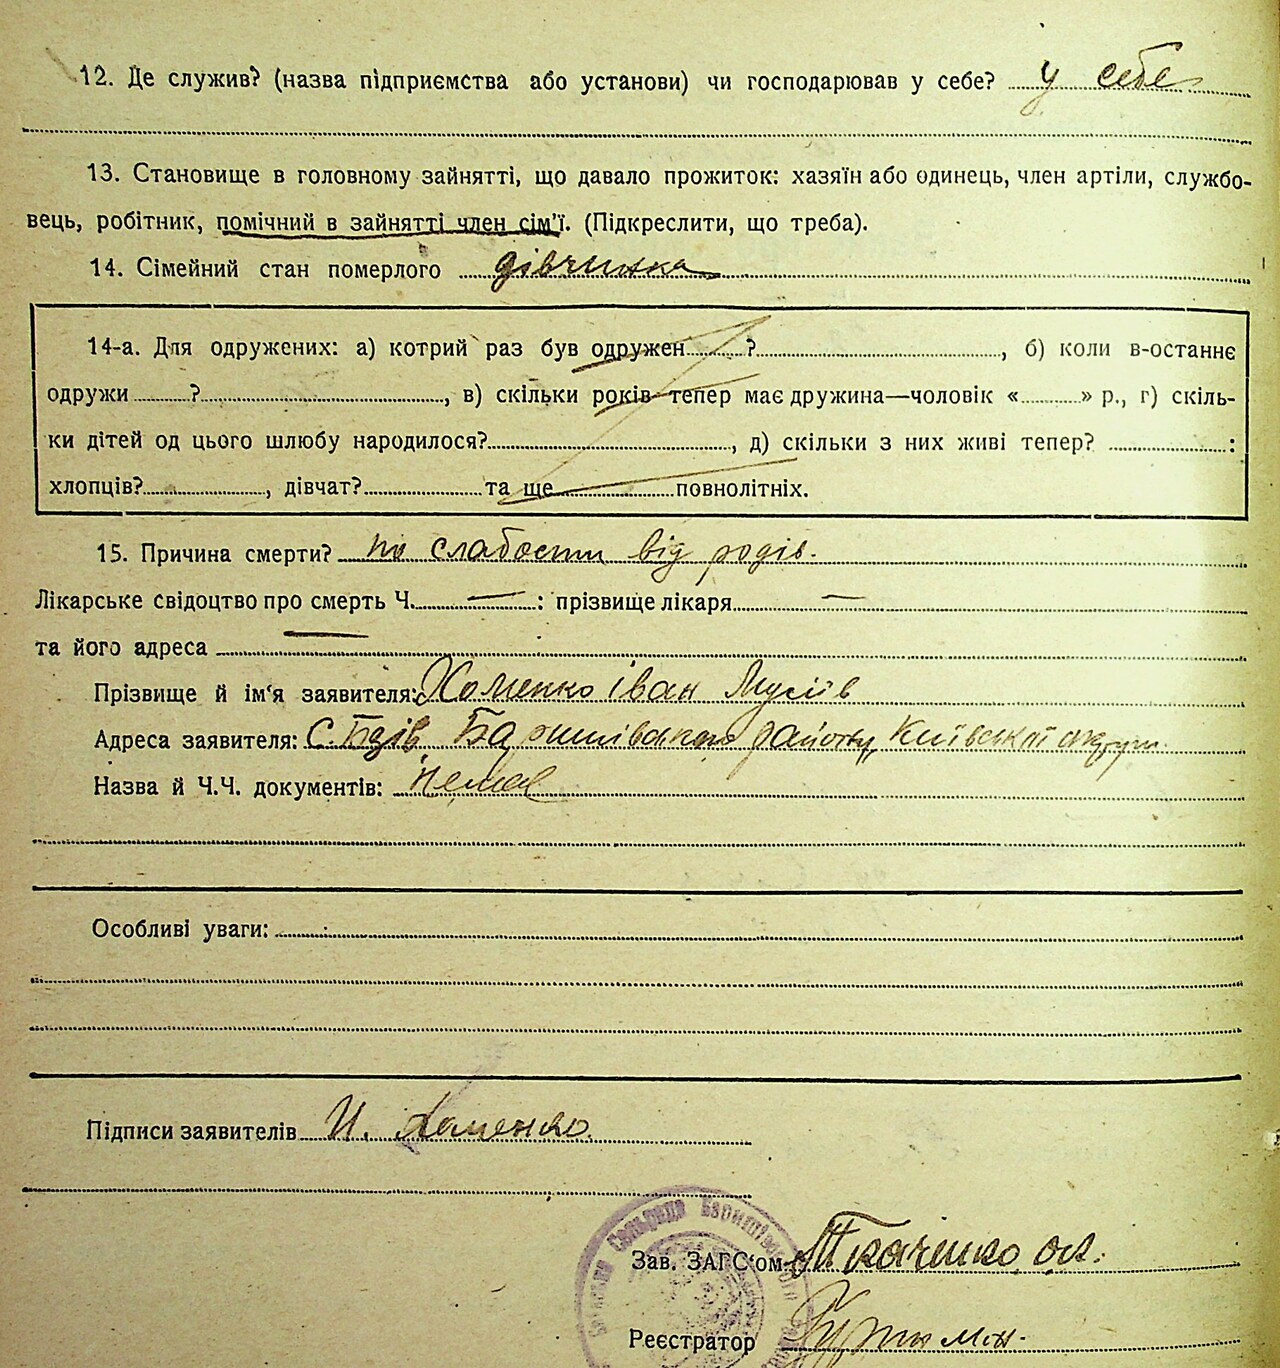 12. Де служив? (назва підприємства або установи) чи господарював у себе? у себе
13. Становище в головному зайнятті, що давало прожиток: хазяїн або одинець, член артіли, службо-
вець, робітник, помічний в зайнятті член сім'ї. (Підкреслити, що треба).
14. Сімейний стан померлого дівчинка
14-а. Для одружених: а) котрий раз був одружен ? , б) коли в-останнє
одружи ? , в) скільки років тепер має дружина—чоловік « » р., г) скіль-
ки дітей од цього шлюбу народилося? , д) скільки з них живі тепер? :
хлопців? , дівчат? та ще повнолітніх.
15. Причина смерти? по слабости від родів.
Лікарське свідоцтво про смерть Ч. — : прізвище лікаря —
та його адреса —
Прізвище й ім'я заявителя: Хоменко Іван Мусіїв
Адреса заявителя: С. Бзів Баришівського району, Київської округи
Назва й Ч.Ч. документів: немає
Особливі уваги:
Підписи заявителів И. Хоменко
Сельрада Баришівсько
Зав. ЗАГС'ом Ткаченко
Реєстратор